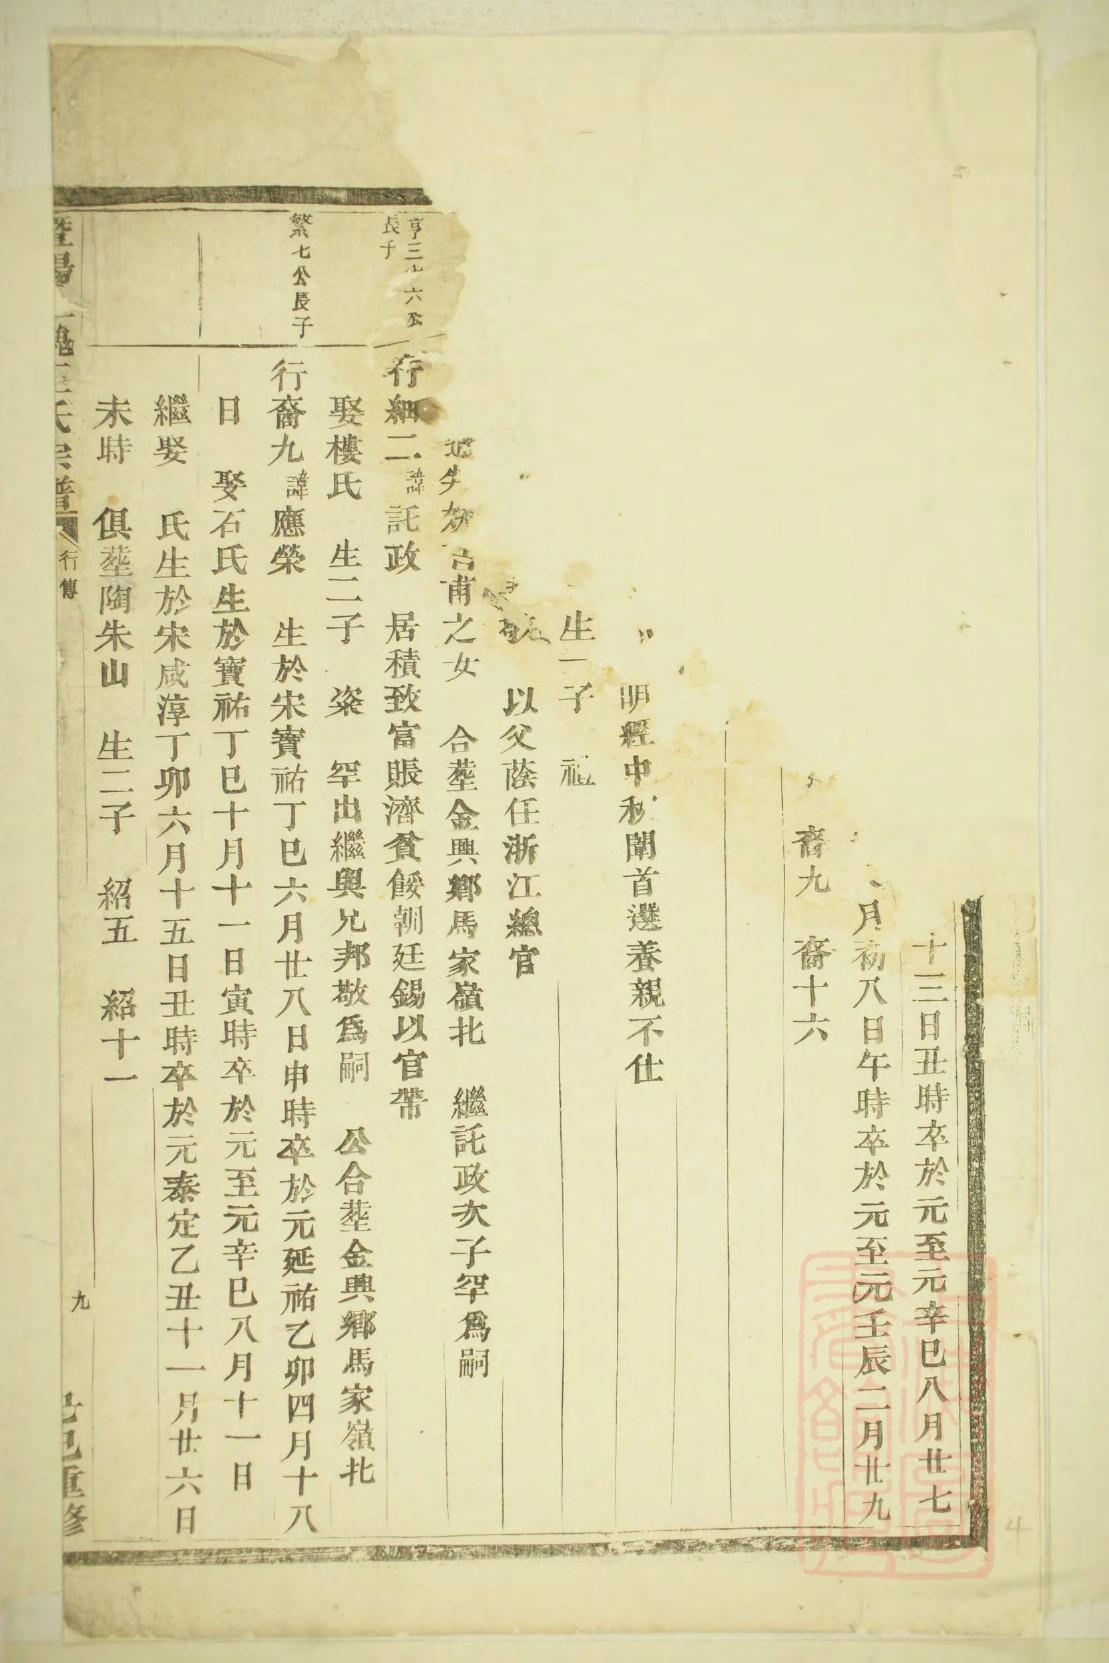 十三日丑時卒於元至元辛巳八月廿七
月初八日午時卒於元至元壬辰二月廿九
裔九 裔十六
明經中秋闈首選養親不仕
生一子 福
以父蔭任浙江總官
甫之女 合塟金興鄉馬家嶺北 繼託政次子罕爲嗣
亨三 六公長子
行細二 諱託政 居積致富賬濟貧餒朝廷錫以官帶
娶樓氏 生二子 粢 罕出繼與兄邦敬爲嗣 公合塟金興鄉馬家嶺北
繁七公長子
行裔九 諱應榮 生於宋寶祐丁巳六月廿八日申時卒於元延祐乙卯四月十八
日 娶石氏生於寶祐丁巳十月十一日寅時卒於元至元辛巳八月十一日
繼娶 氏生於宋咸淳丁卯六月十五日丑時卒於元泰定乙丑十一月廿六日
未時 俱塟陶朱山 生二子 紹五 紹十一
暨陽 氏宗譜 行傳 九 己巳重修
4